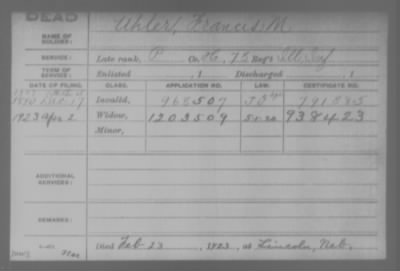 DEAD
NAME OF SOLDIER: Uhler, Francis M
SERVICE: Late rank, P Co. H, 78 Reg't Ills Inf
TERM OF SERVICE: Enlisted , 1 Discharged , 1
DATE OF FILING. CLASS. APPLICATION NO. LAW. CERTIFICATE NO.
Dec 17 Invalid, 968507 791885
1923 Apr 2 Widow, 1203509 938423
Minor,
ADDITIONAL SERVICES:
REMARKS:
Died Feb 23, 1923, at Lincoln, Neb.